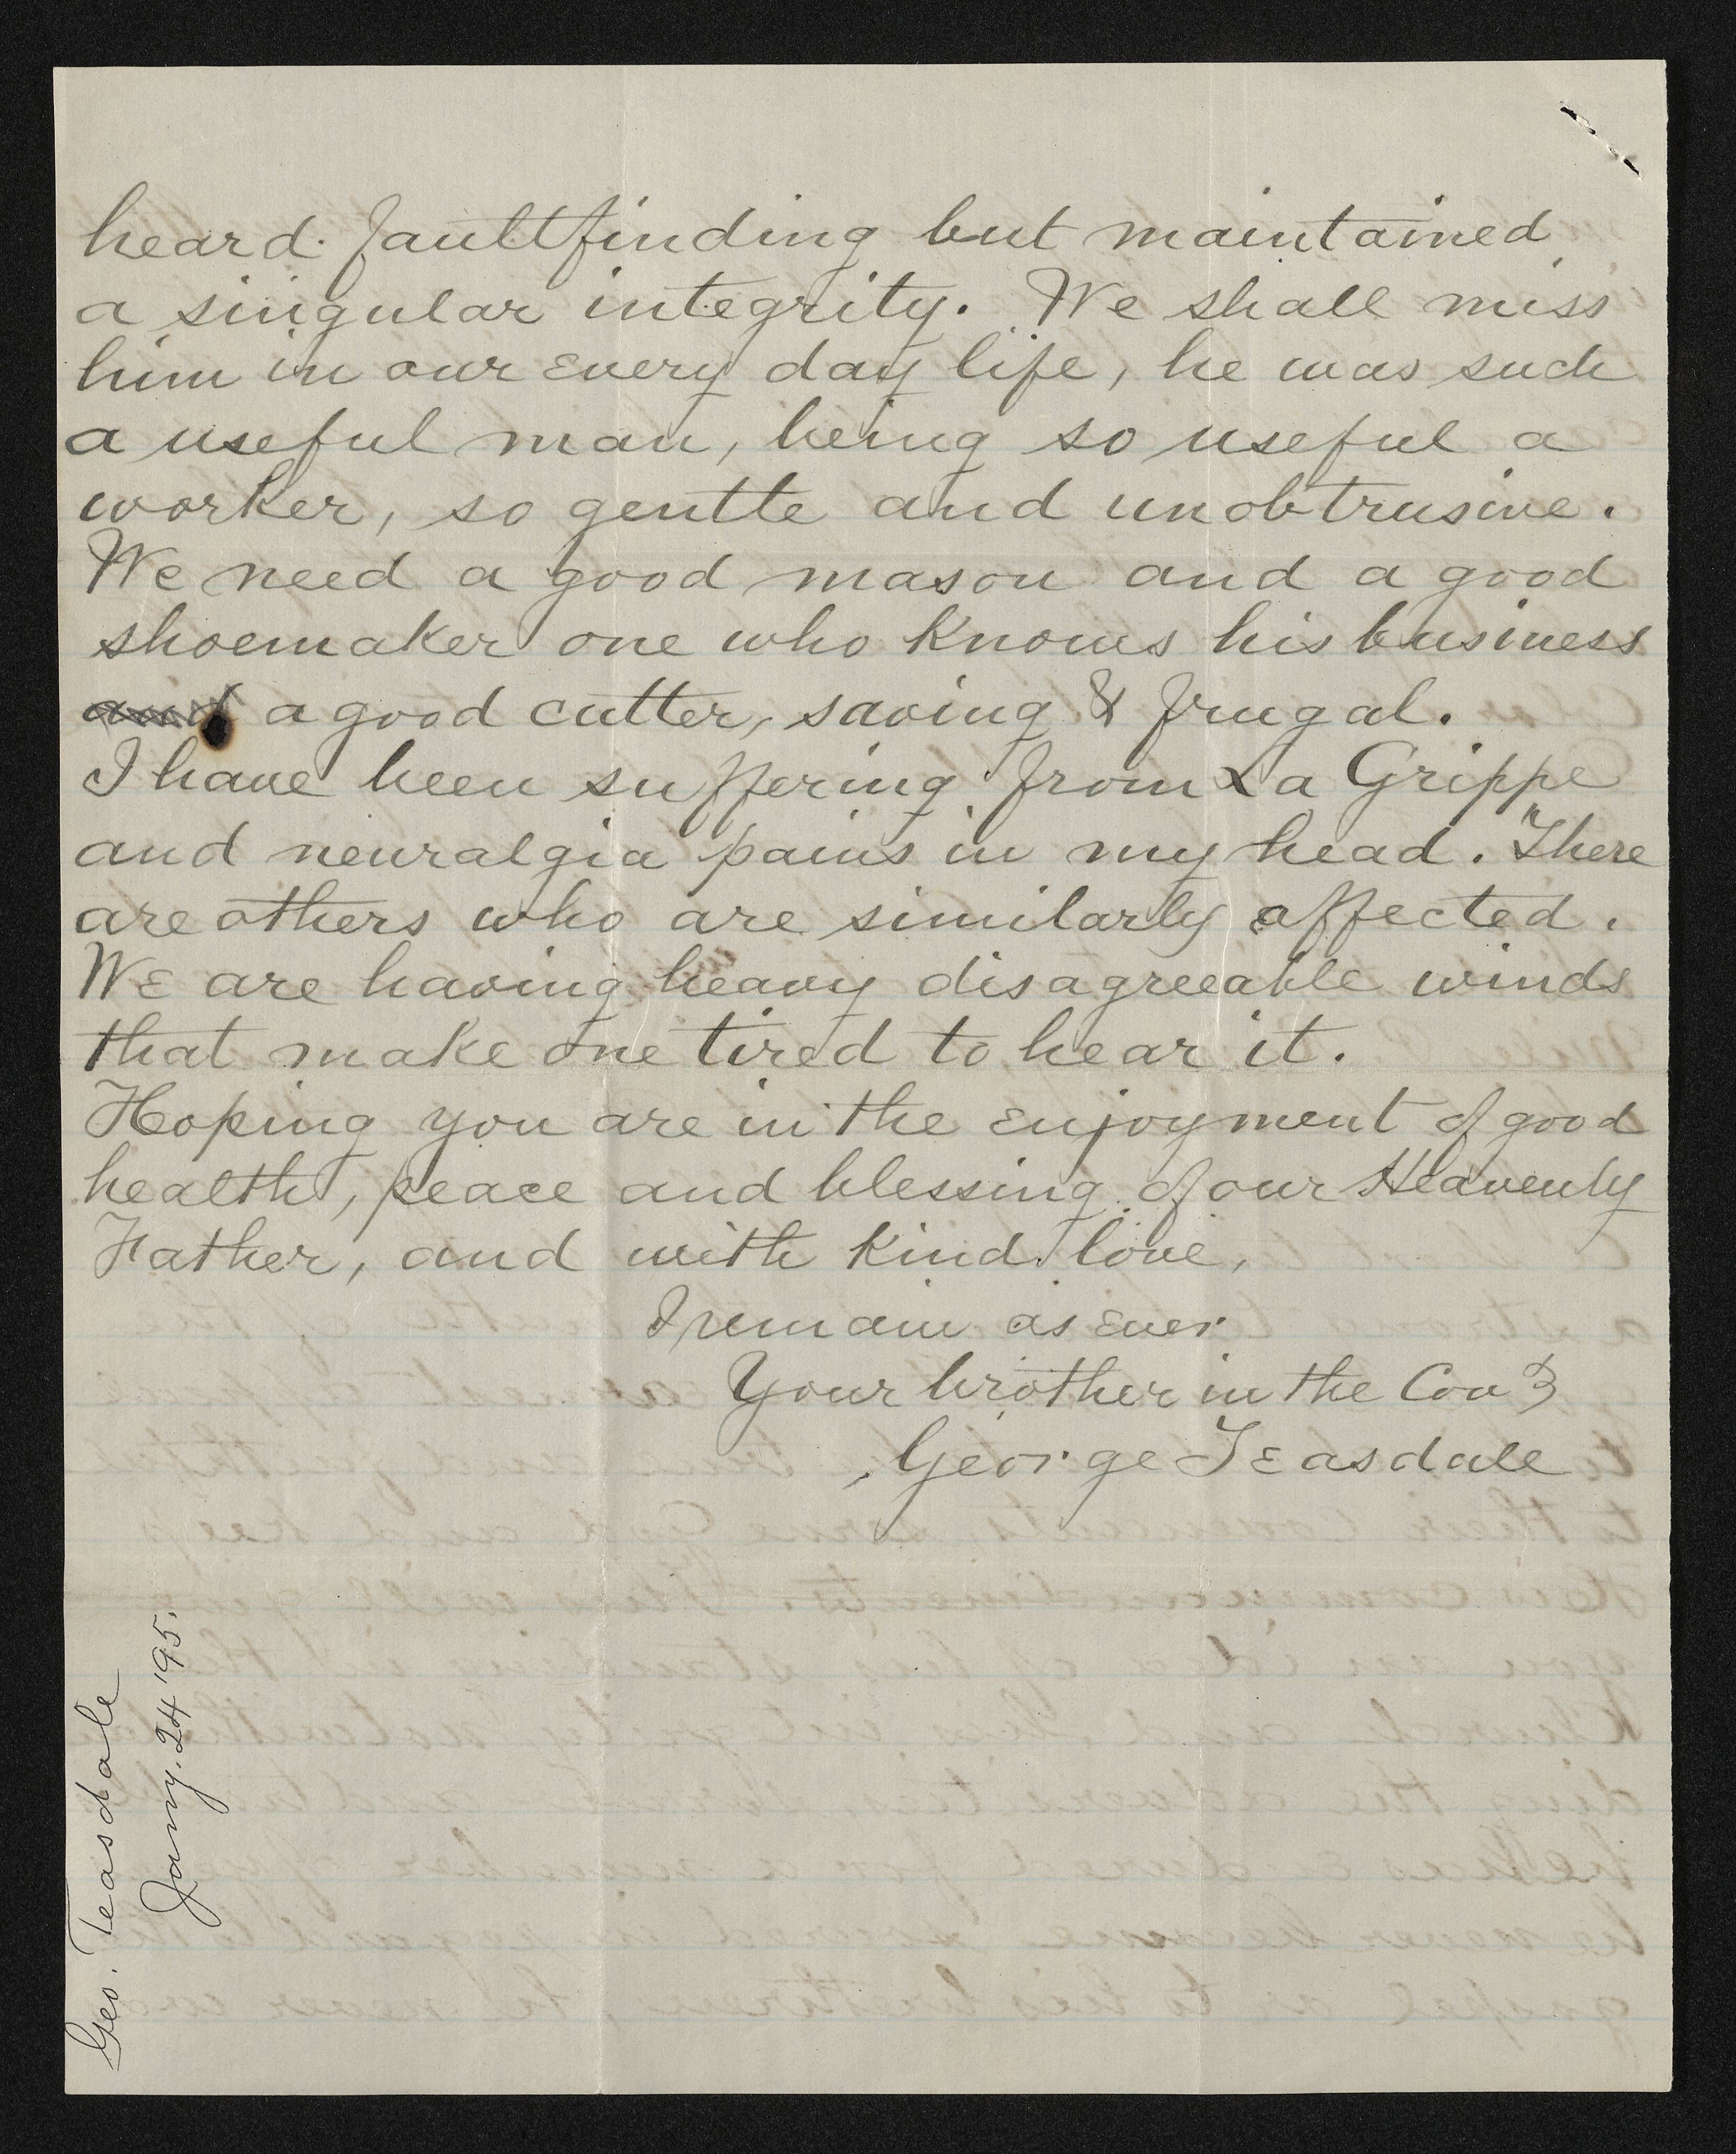 heard faultfinding but maintained
a singular integrity. We shall miss
him in our every day life, he was such
a useful man, being so useful a
worker, so gentle and unobtrusive.
We need a good mason and a good
shoemaker one who knows his business
and a good cutter, saving & frugal.
I have been suffering from La Grippe
and neuralgia pains in my head. There
are others who are similarly affected.
We are having heavy disagreeable winds
that make one tired to hear it.
Hoping you are in the enjoyment of good
health, peace and blessing of our Heavenly
Father, and with kind love,
I remain as ever
Your brother in the Cov't
George Teasdale
Geo. Teasdale
Jany. 24 '95.